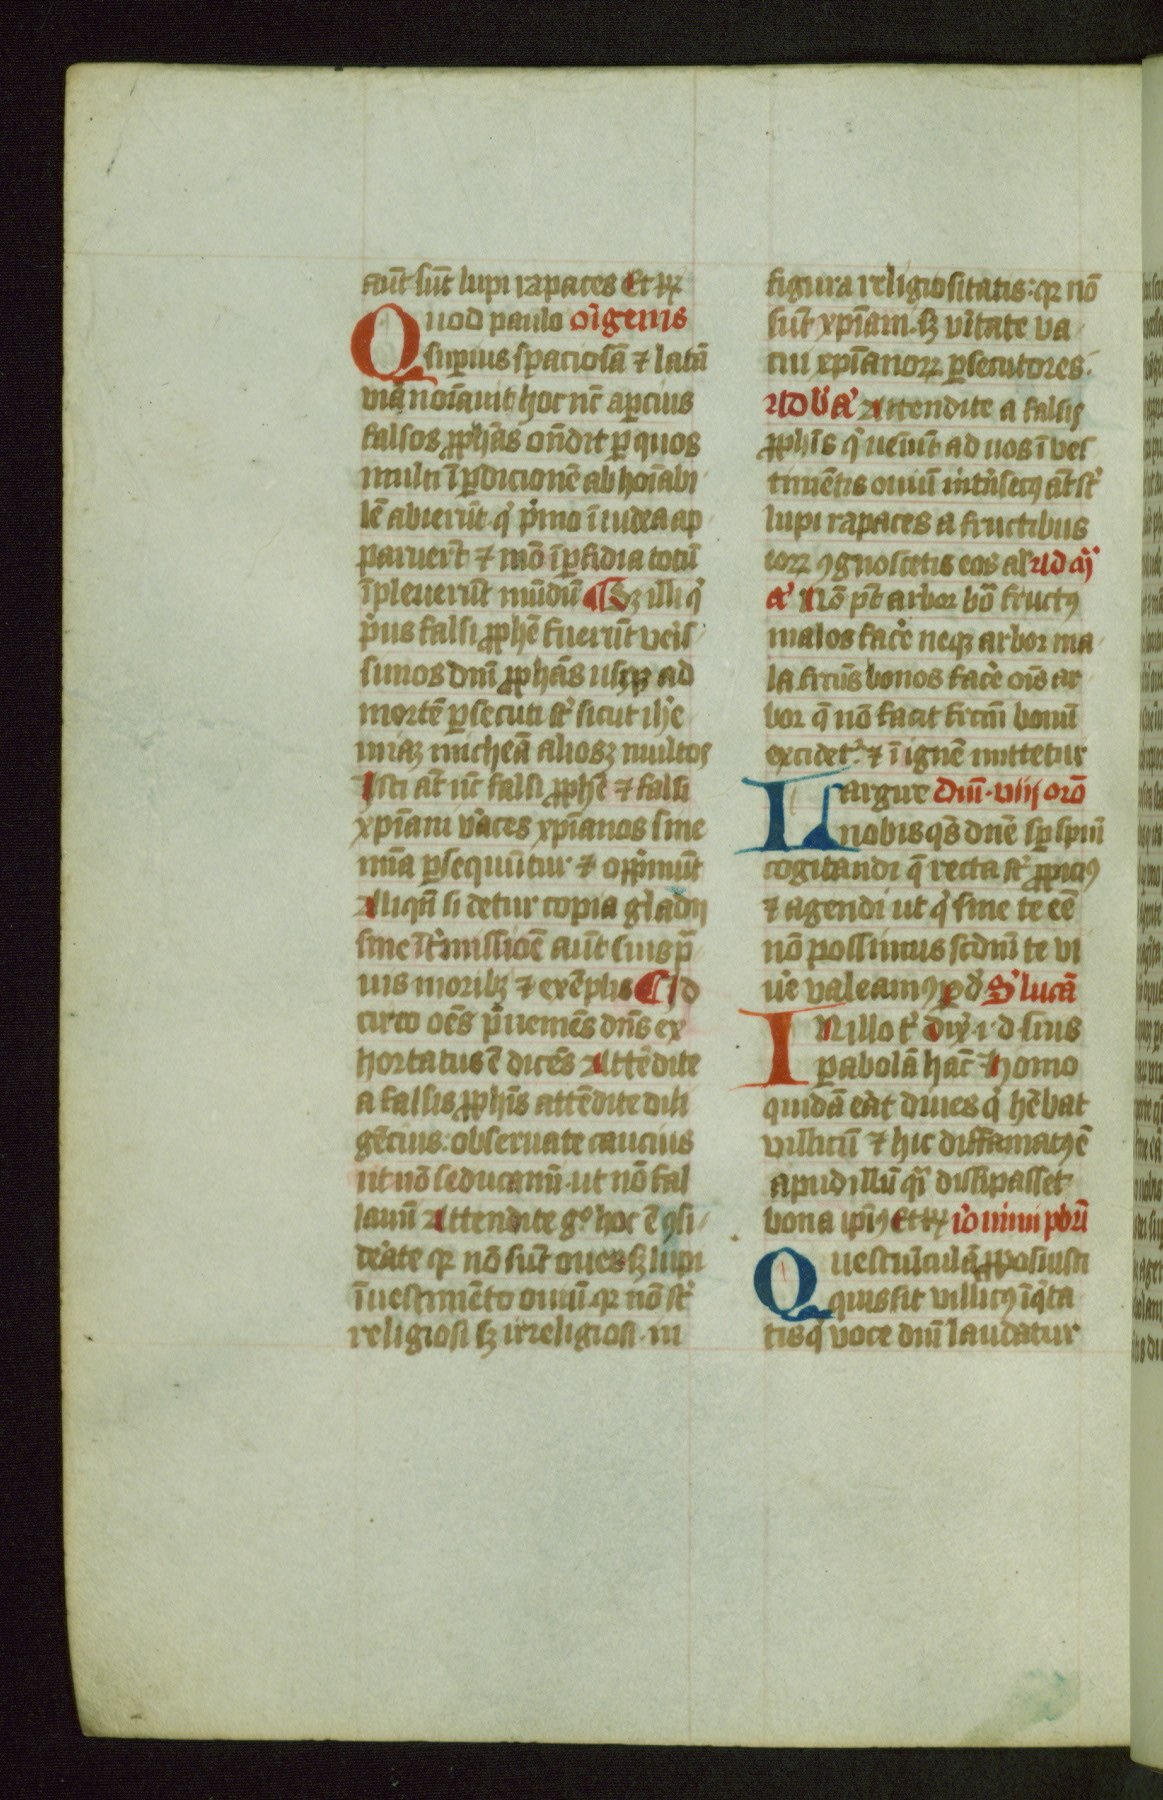 aut͞ sūt lupi rapaces Et rͤ
Quod paulo origenis
suꝑius spaciosā ⁊ latā
viā noīauit hoc nc̄ aꝑcius
falsos ꝓphās on̄dit ꝑ quos
multi ī ꝑdicionē abhoīabi
lē abierūt qͥ pͥmo ī iudea ap
paruerūt ⁊ mō ī ꝑfidia totū
īpleuerūt mūdū ¶ Sꝫ illi qͥ
pͥus falsi ꝓphē fuerūt veris
simos dnī ꝓphās usqꝫ ad
mortē ꝑsecuti st̄ sicut ihe
miaꝫ micheā aliosqꝫ multos
Isti at̄ nc̄ falsi ꝓphē ⁊ falsi
xp̄iani vͥaces xp̄ianos sine
mīa ꝑsequūtur ⁊ oppͥmūt
Aliqn̄ si detur copia gladij
sine īt̓missiōe aut̄ suis pͣ
uis moribꝫ ⁊ exēplis ¶ Id
circo oēs pͥueniēs dn̄s ex
hortatus ē dicēs Attēdite
a falsis ꝓphīs attēdite dili
gēcius obseruate caucius
ut nō seducāni ut nō fal
lauī Attendite gͦ hoc ē ꝯsi
derate qꝛ nō sūt oues sꝫ lupi
ī uestimēto ouiū qꝛ nō st̄
religiosi sꝫ irreligiosi in
figura religiositatis qꝛ nō
sūt xp̄iani sꝫ vͥitate va
cui xp̄ianoꝝ ꝑsecutores
Ad bn̄ a͞ Attendite a falsis
ꝓphīs qͥ ueniūt ad uos ī ves
timētis ouiū intͥsecꝰ at̄ st̄
lupi rapaces a fructibus
eoꝝ ꝯgnoscetis eos al̄ Ad m͞
a͞ Nō pt̄ arbor bōa fructꝰ
malos facͤe neqꝫ arbor ma
la frcūs bonos facͤe oīs ar
bor q̄ nō facit frcm̄ bonū
excidetͬ ⁊ ī ignē mittetur
Largire Dnī viij orō
nobis qͥs dnē sꝑ spm̄
cogitandi q̄ recta st̄ ꝓpiciꝰ
⁊ agendi ut qͥ sine te eē
nō possumus scdm̄ te vi
uͤe valeamꝰ ꝑ d̄ S̄ lucā
In illo tͬ dix̄ i d suis
ꝑabolā hāc Homo
quidā erat diues qͥ hēbat
villicū ⁊ hic diffamatꝰ ē
apud illū qͣi dissipasset
bona ipīꝰ Et rͤ iͦonimi pbrī
Questiūculā ꝓposuisti
quis sit villicꝰ īiqͥta
tis qͥ voce dnī laudatur